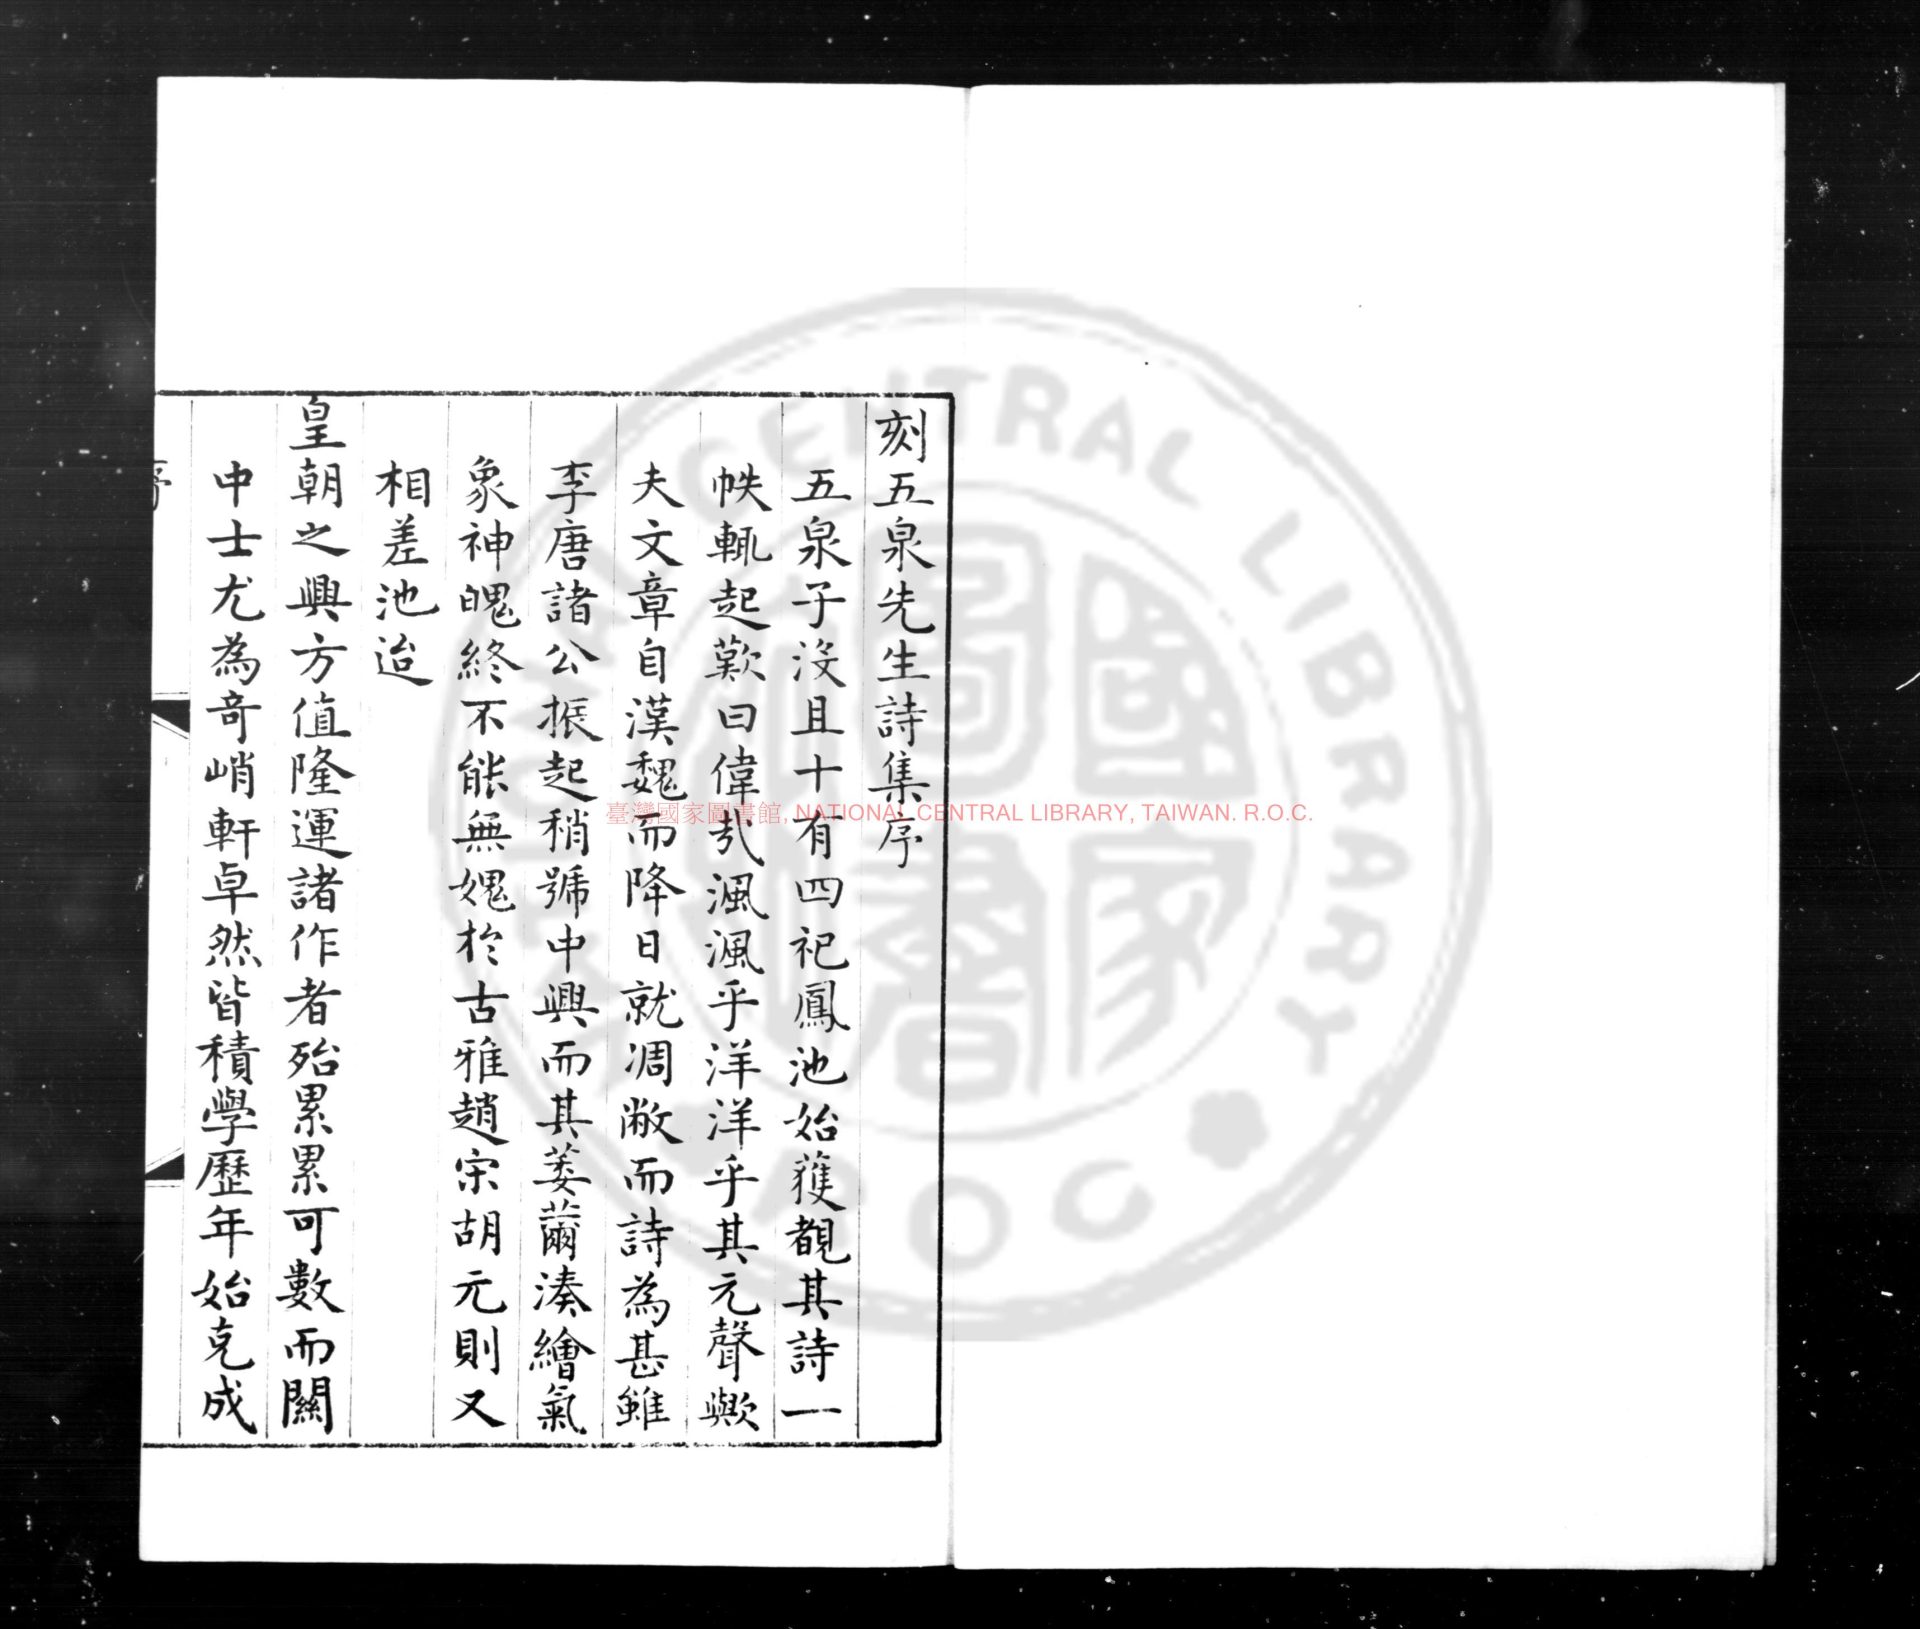 刻五泉先生詩集序
五泉子沒且十有四祀鳳池始獲覩其詩一
帙輒起歎曰偉哉渢渢乎洋洋乎其元聲歟
夫文章自漢魏而降日就凋敝而詩為甚雖
李唐諸公振起稍號中興而其萎薾湊繪氣
象神魄終不能無媿於古雅趙宋胡元則又
相差池迨
皇朝之興方值隆運諸作者殆累累可數而關
中士尤為奇峭軒卓然皆積學歷年始克成
序
臺灣國家圖書館, NATIONAL CENTRAL LIBRARY, TAIWAN. R.O.C.
NATIONAL CENTRAL LIBRARY
R.O.C
國家圖書